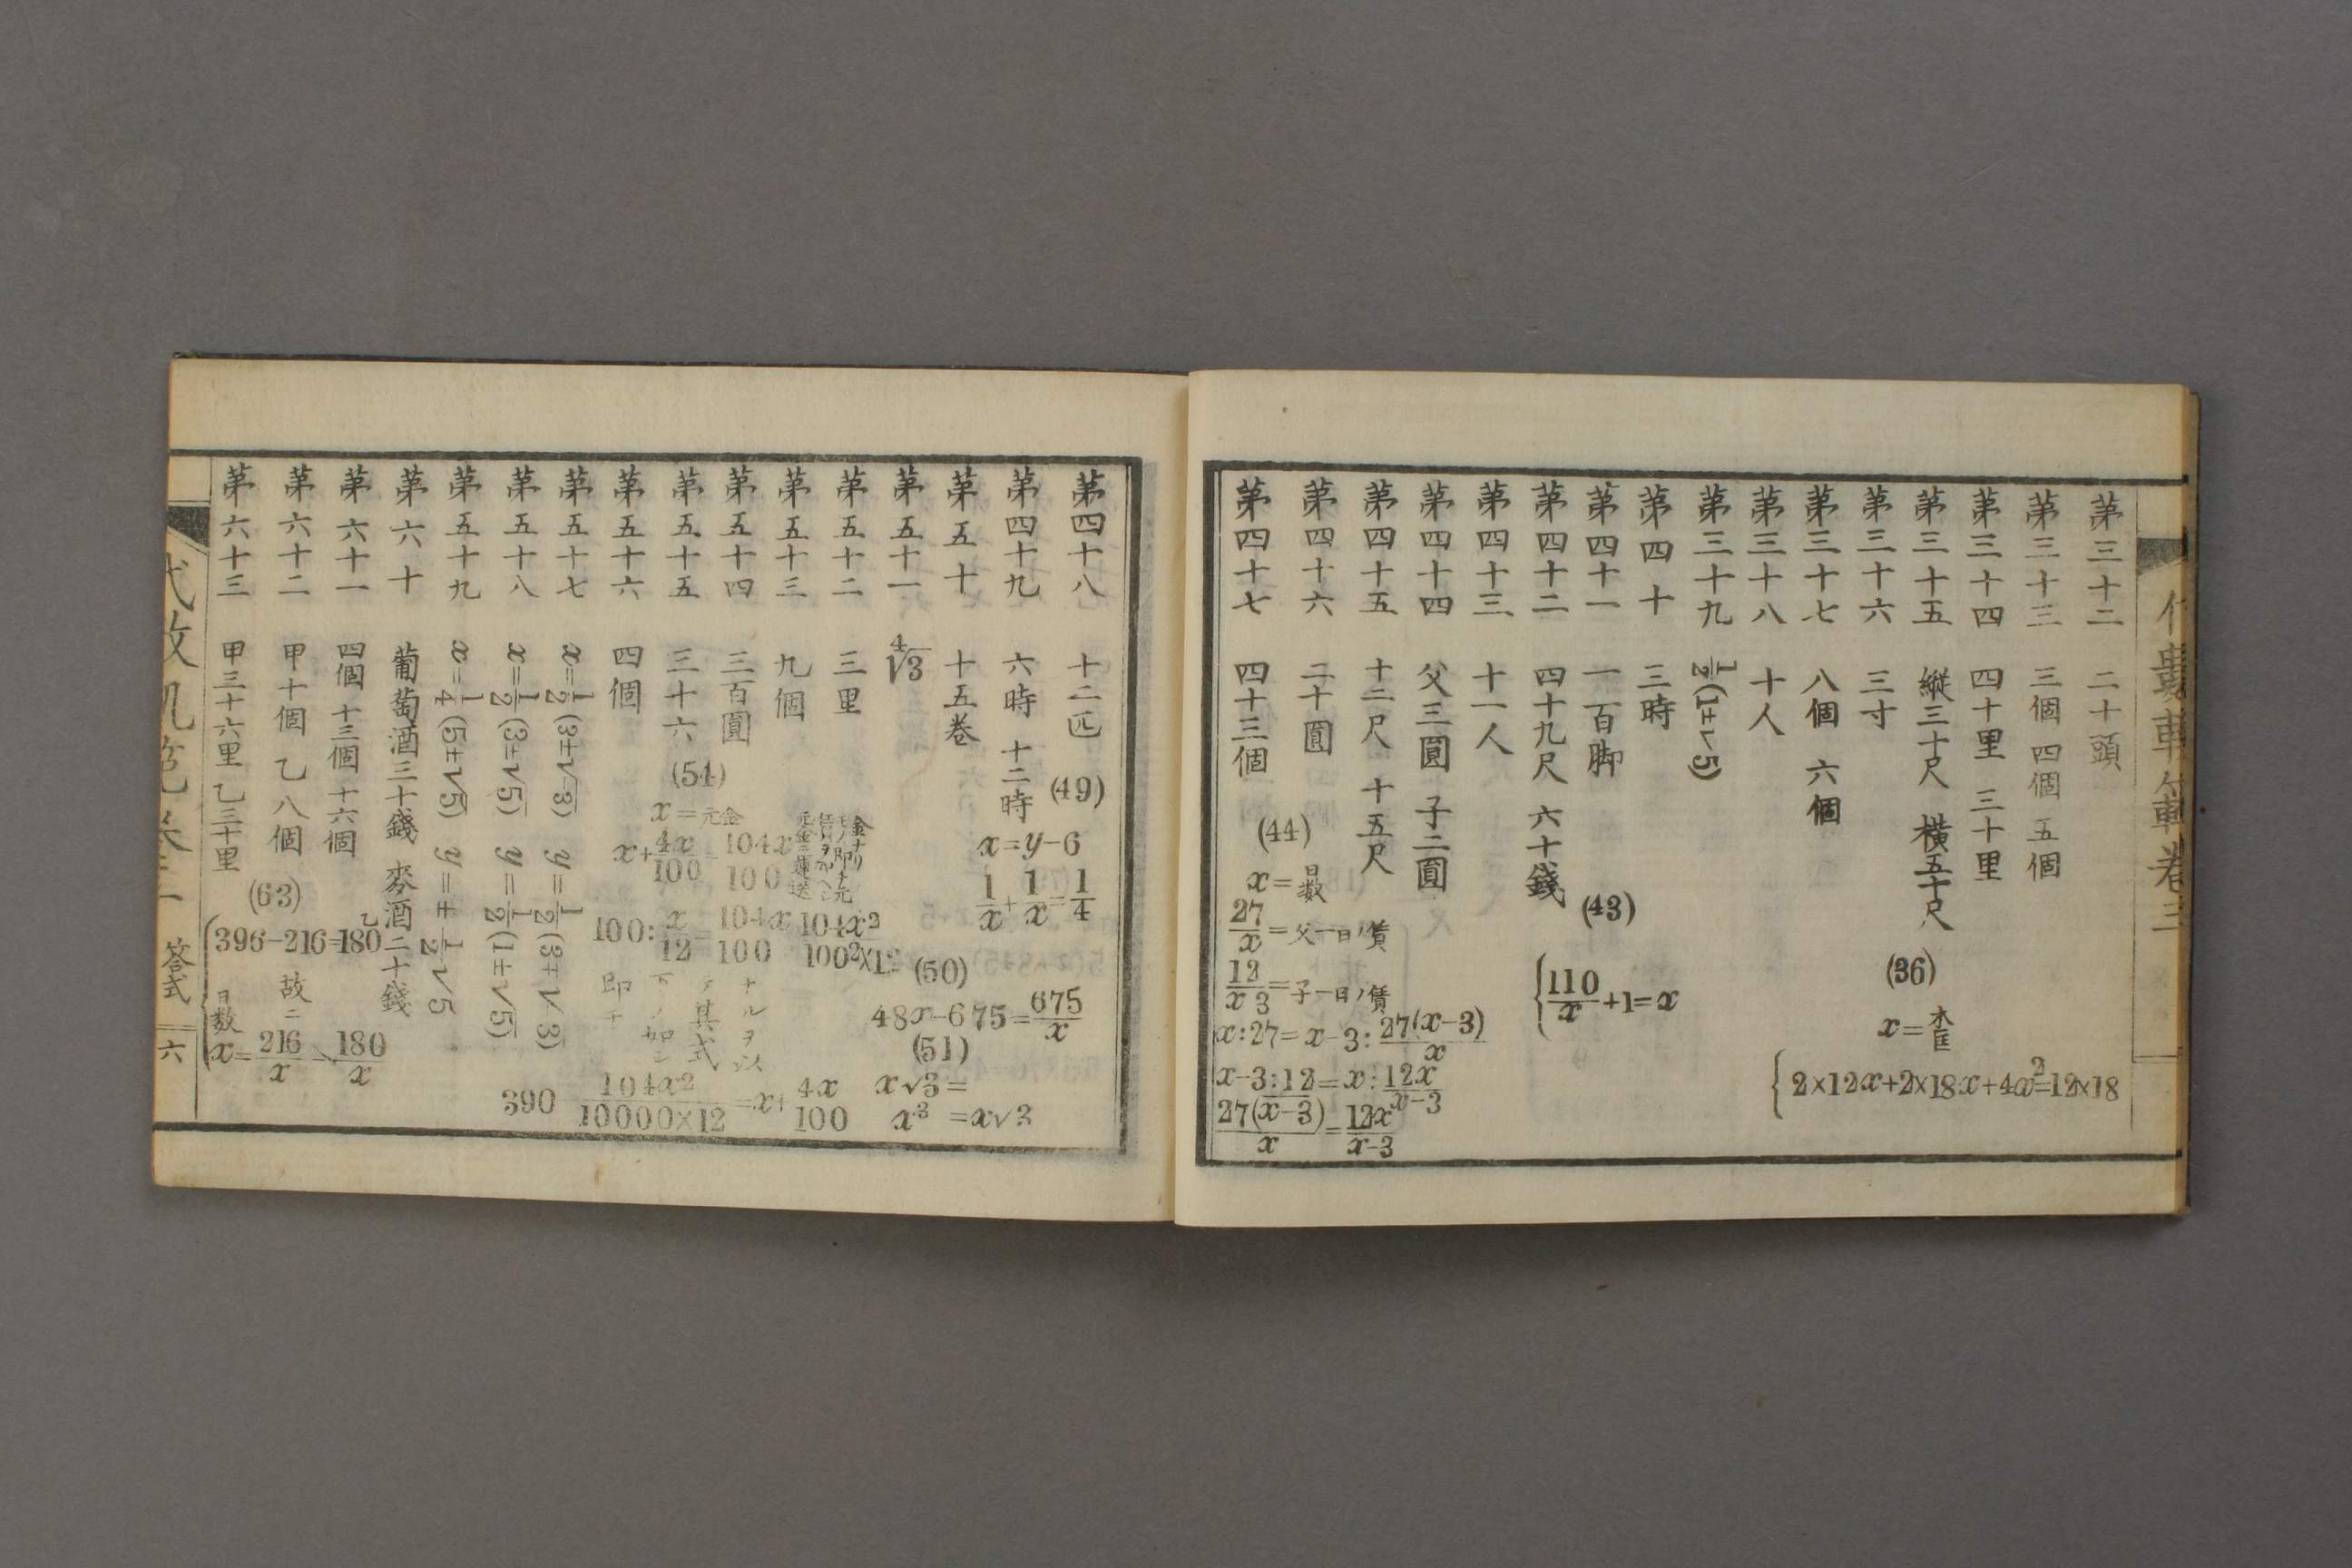 第三十二 二十頭
第三十三 三個 四個 五個
第三十四 四十里 三十里
第三十五 縦三十尺 横五十尺
第三十六 三寸
第三十七 八個 六個
第三十八 十人
第三十九 1/2(1±√5)
第四十 三時
第四十一 一百脚
第四十二 四十九尺 六十錢
第四十三 十一人
第四十四 父三圓 子二圓
第四十五 十二尺 十五尺
第四十六 二十圓
第四十七 四十三個
(36)
2×12x+2×18x+4x²=12×18
(43)
110/x+1=x
(44)
x=日数
27/x=父一日ノ賃
12/x-3=子一日ノ賃
x:27=x-3:27(x-3)/x
x-3:12=x:12x/x-3
27(x-3)/x=12x/x-3
第四十八 十二匹
第四十九 六時 十二時
第五十 十五巻
第五十一 ⁴√3
第五十二 三里
第五十三 九個
第五十四 三百圓
第五十五 三十六
第五十六 四個
第五十七 x=1/2(3±√-3) y=1/2(3∓√-3)
第五十八 x=1/2(3±√5) y=1/2(1±√5)
第五十九 x=1/4(5±√5) y=±1/2√5
第六十 葡萄酒三十錢 麥酒二十錢
第六十一 四個 十三個 十六個
第六十二 甲十個 乙八個
第六十三 甲三十六里 乙三十里
(49)
x=y-6
1/x+1/x=1/4
(50)
48x-675=675/x
(51)
x√3=
x³=x√3
(54)
x=元金
x+4x/100=104x/100
100:x/12=104x/100
104x²/100²×12
ナルヲ以
テ其式
下ノ如シ
即チ
104x²/10000×12=x+4x/100
390
(63)
396-216=180乙
故ニ
日数
x=216/x-180/x
代數軌範卷三 答式 六